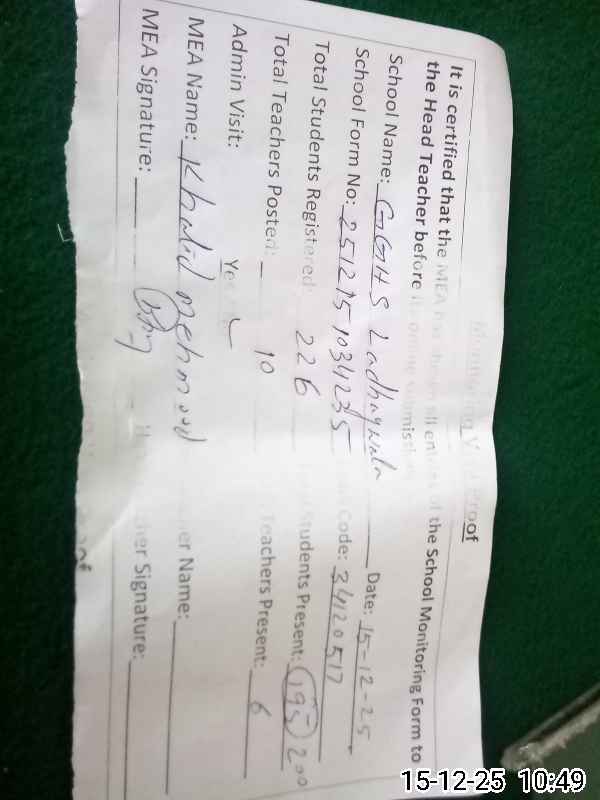 Monitoring Visit Proof
It is certified that the MEA has shown all entries of the School Monitoring Form to
the Head Teacher before its online submission.
School Name: GGHS Ladhaywala Date: 15-12-25
School Form No: 251215 1034235 Code: 34120517
Total Students Registered: 226 Students Present: 195 200
Total Teachers Posted: 10 Teachers Present: 6
Admin Visit: Yes
MEA Name: Khalid mehmood er Name:
MEA Signature: her Signature:
of
15-12-25 10:49